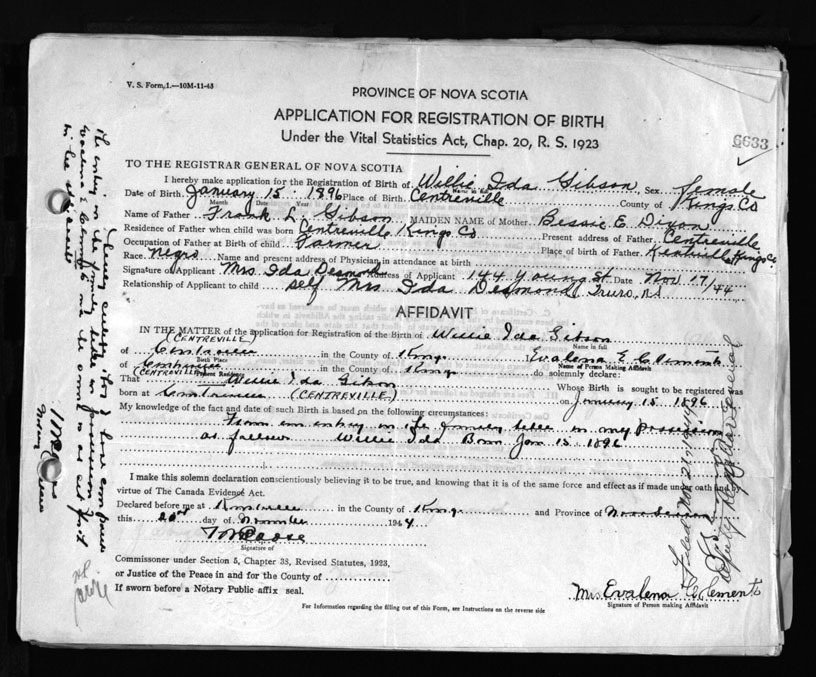 V. S. Form 1.—10M-11-43
PROVINCE OF NOVA SCOTIA
APPLICATION FOR REGISTRATION OF BIRTH
Under the Vital Statistics Act, Chap. 20, R. S. 1923
6633
TO THE REGISTRAR GENERAL OF NOVA SCOTIA
I hereby make application for the Registration of Birth of Willie Ida Gibson, Sex female
Name in full
Date of Birth January 15 1896 Place of Birth Centreville County of Kings Co
Month Date Year
Name of Father Frank L. Gibson MAIDEN NAME of Mother Bessie E Dixon
Residence of Father when child was born Centreville Kings Co Present address of Father Centreville
Occupation of Father at Birth of child Farmer Place of birth of Father Kentville Kings Co
Race Negro Name and present address of Physician in attendance at birth
Signature of Applicant Mrs Ida Desmond Address of Applicant 144 Young St Date Nov 17/44
Relationship of Applicant to child self Mrs Ida Desmond Truro, N.S
AFFIDAVIT
IN THE MATTER of the application for Registration of the Birth of Willie Ida Gibson
Name in full
(CENTREVILLE)
of Centreville in the County of Kings Evalena E Clements
Birth Place Name of Person Making Affidavit
of Centreville in the County of Kings do solemnly declare:
Present Residence
(CENTREVILLE)
That Willie Ida Gibson Whose Birth is sought to be registered was
born at Centreville (CENTREVILLE) on January 15 1896
My knowledge of the fact and date of such Birth is based on the following circumstances:
From an entry in the family bible in my possession
as follows Willie Ida Born Jan 15 1896
I make this solemn declaration conscientiously believing it to be true, and knowing that it is of the same force and effect as if made under oath and by
virtue of The Canada Evidence Act.
Declared before me at in the County of Kings and Province of Nova Scotia
this 20th day of November 1944
Signature of
Commissioner under Section 5, Chapter 38, Revised Statutes, 1923,
or Justice of the Peace in and for the County of
If sworn before a Notary Public affix seal.
Mrs Evalena E Clements
Signature of Person making Affidavit
For Information regarding the filling out of this Form, see Instructions on the reverse side
I hereby certify that I have compared
the entry in the family bible in possession of